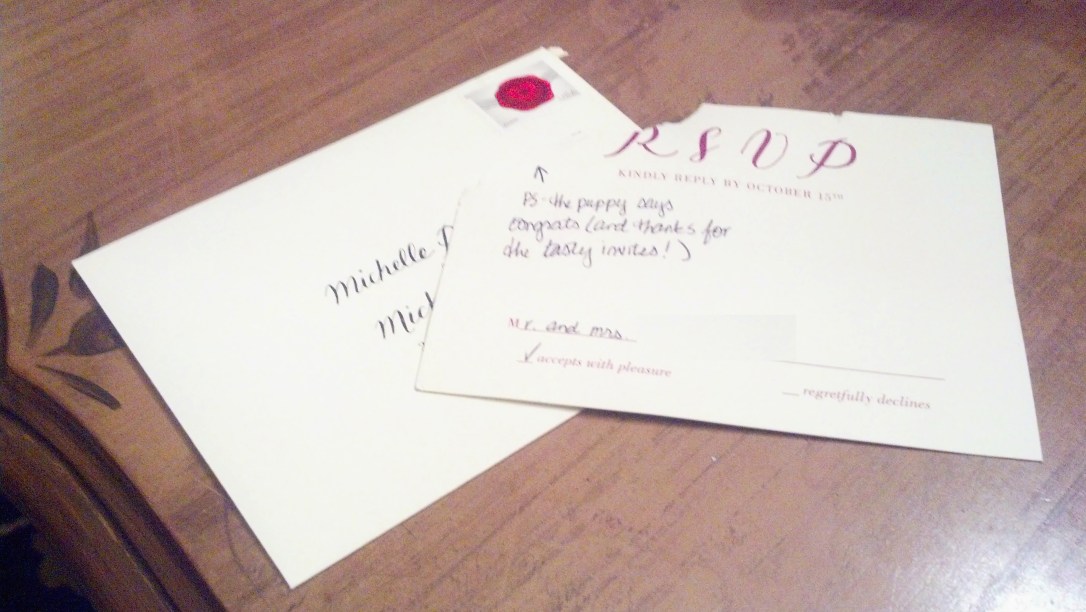 Michelle
RSVP
KINDLY REPLY BY OCTOBER 15TH
PS-the puppy says
congrats (and thanks for
the tasty invites!)
Mr. and mrs.
✓ accepts with pleasure
_ regretfully declines